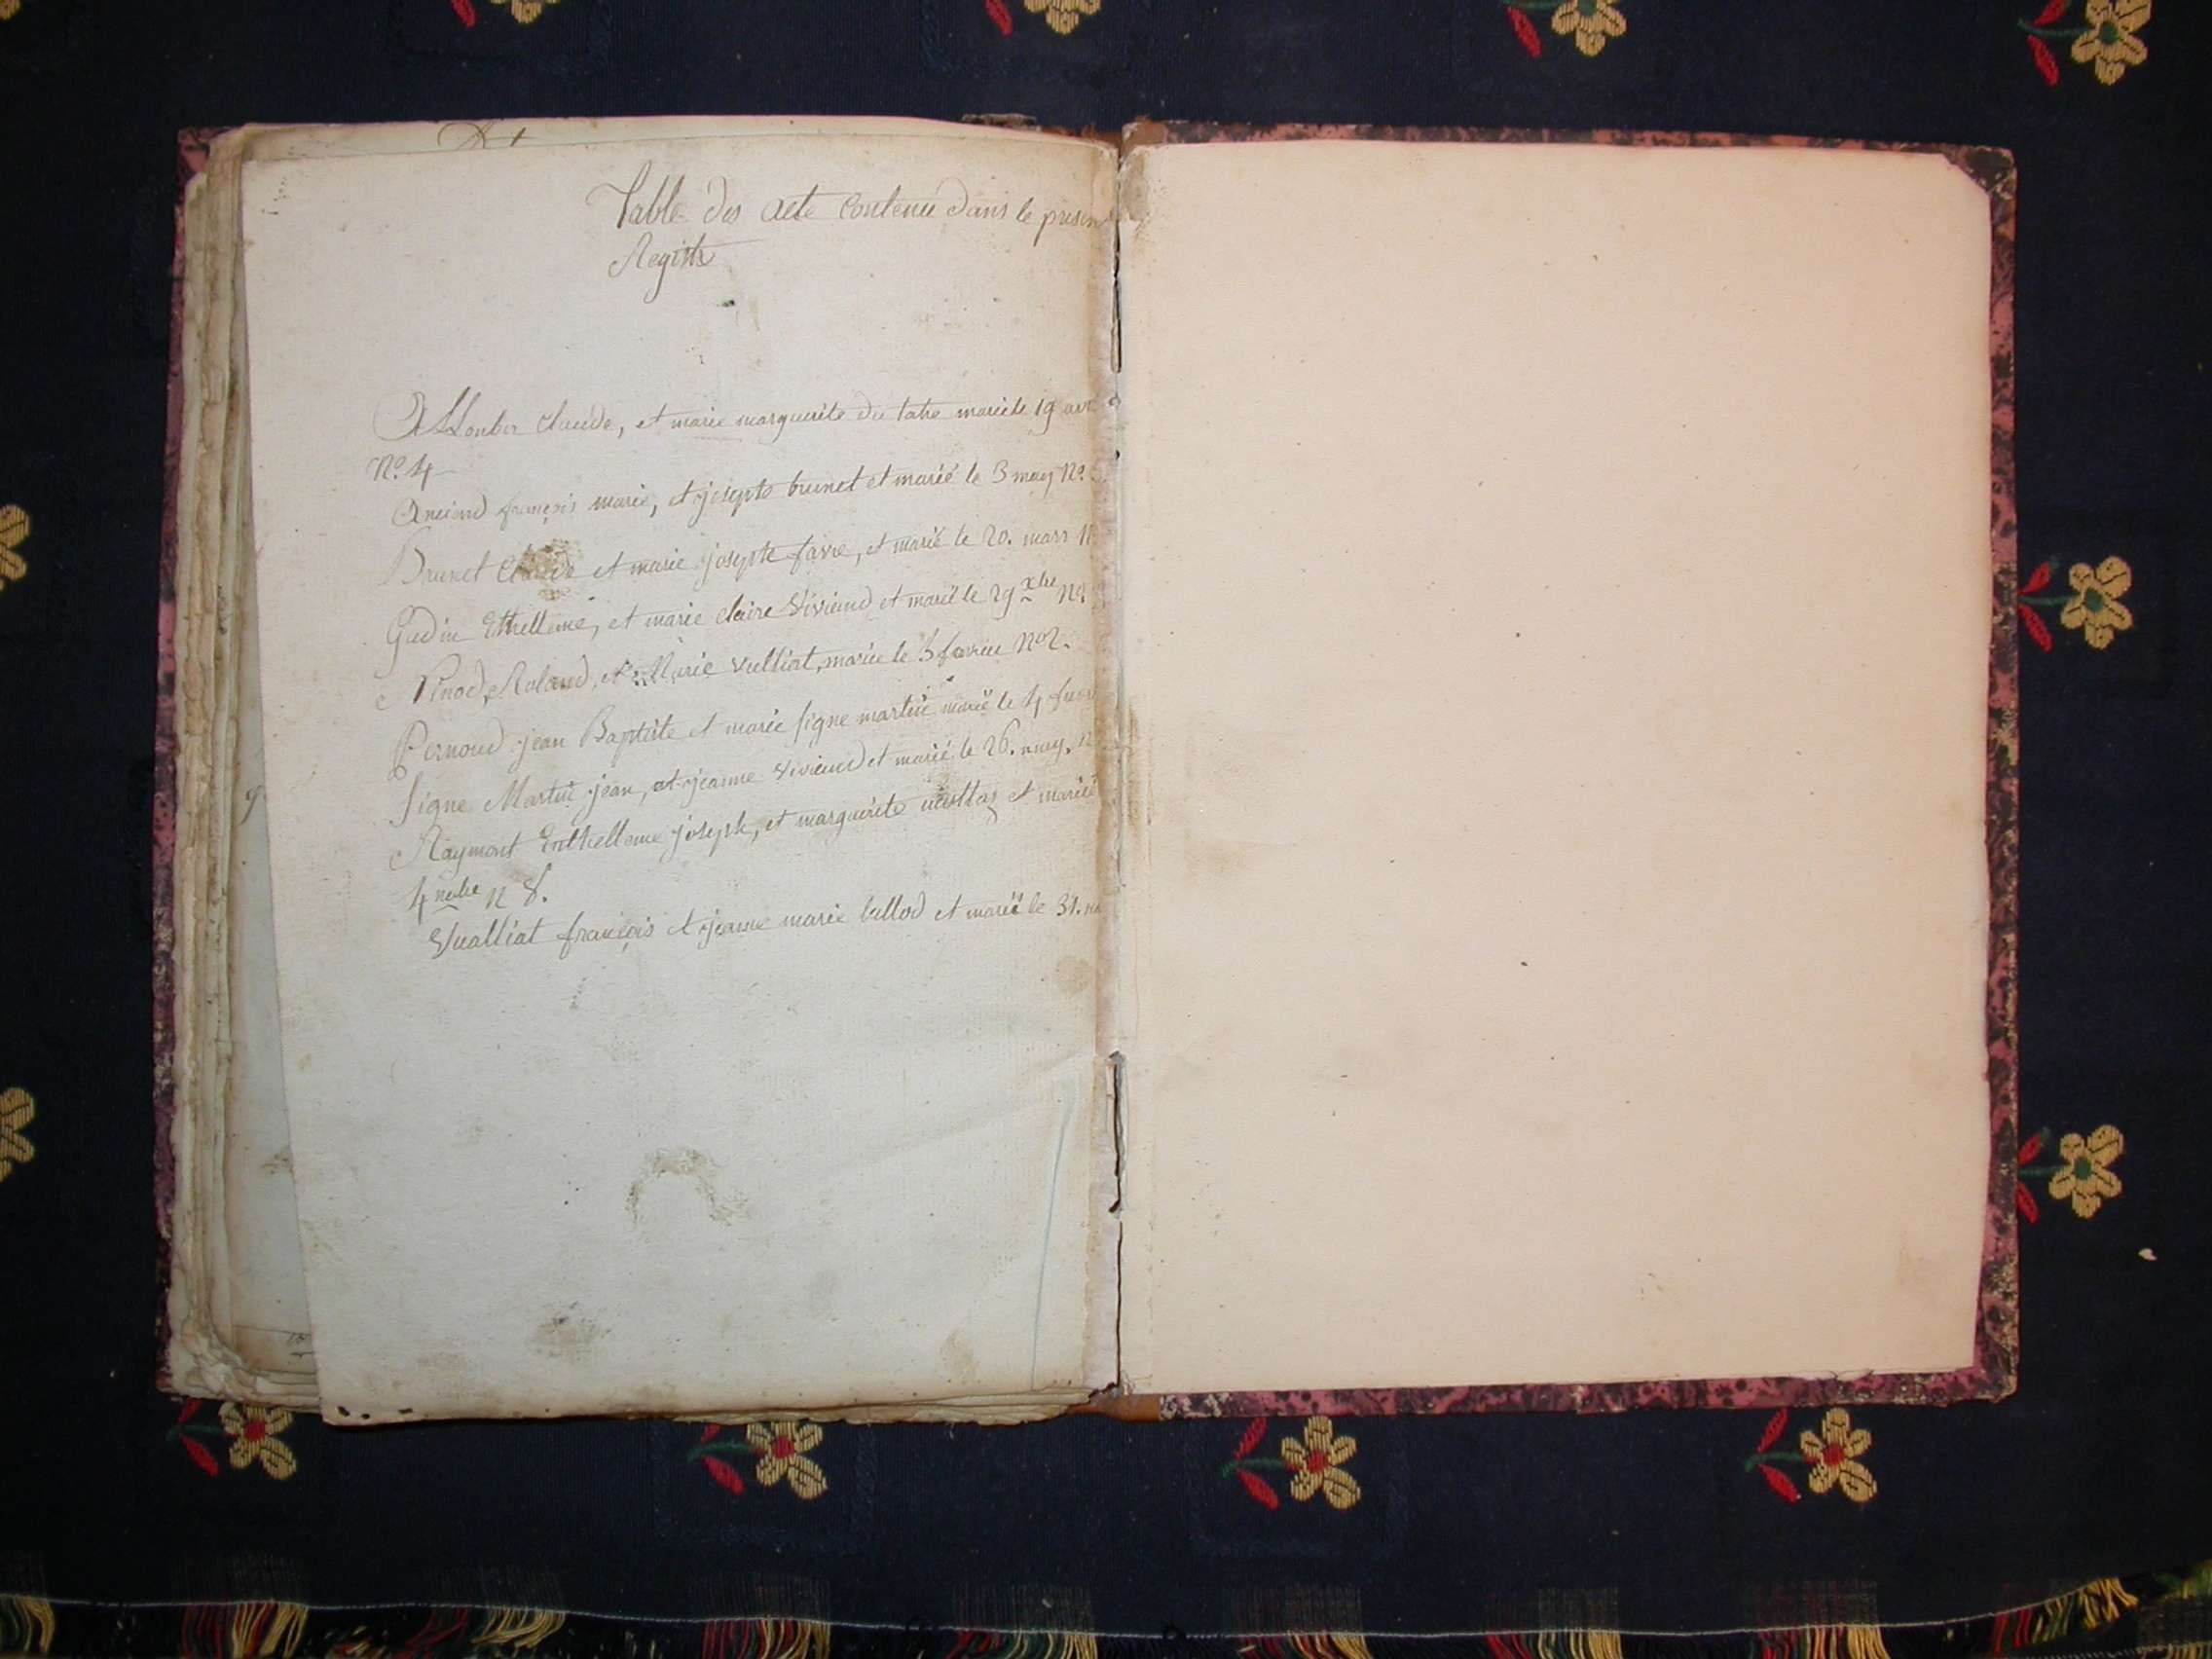 Table des acte contenu dans le presen
Registre
Claude, et marie marguerite du tatre marié le 19 avr
N.º 4
Ancian françois marie, et josepte brunet et marié le 3 may Nº.
Brunet Claude et marie josepte favre, et marié le 20. mars N
Gudin Ethelleme, et marie claire Viviand et marié le 29 xbre Nº.
Pinod, Roland, et Marie vulliat, marié le 3 Nº2.
Pernoud jean Baptiste et marie signe martin marié le 4
signe Martin jean, et jeanne Viviand et marié le 26. may. N
Raymont joseph, et marguerite et marié
4 nbre n 8.
Vualliat françois et jeanne marie bellod et marié le 31.